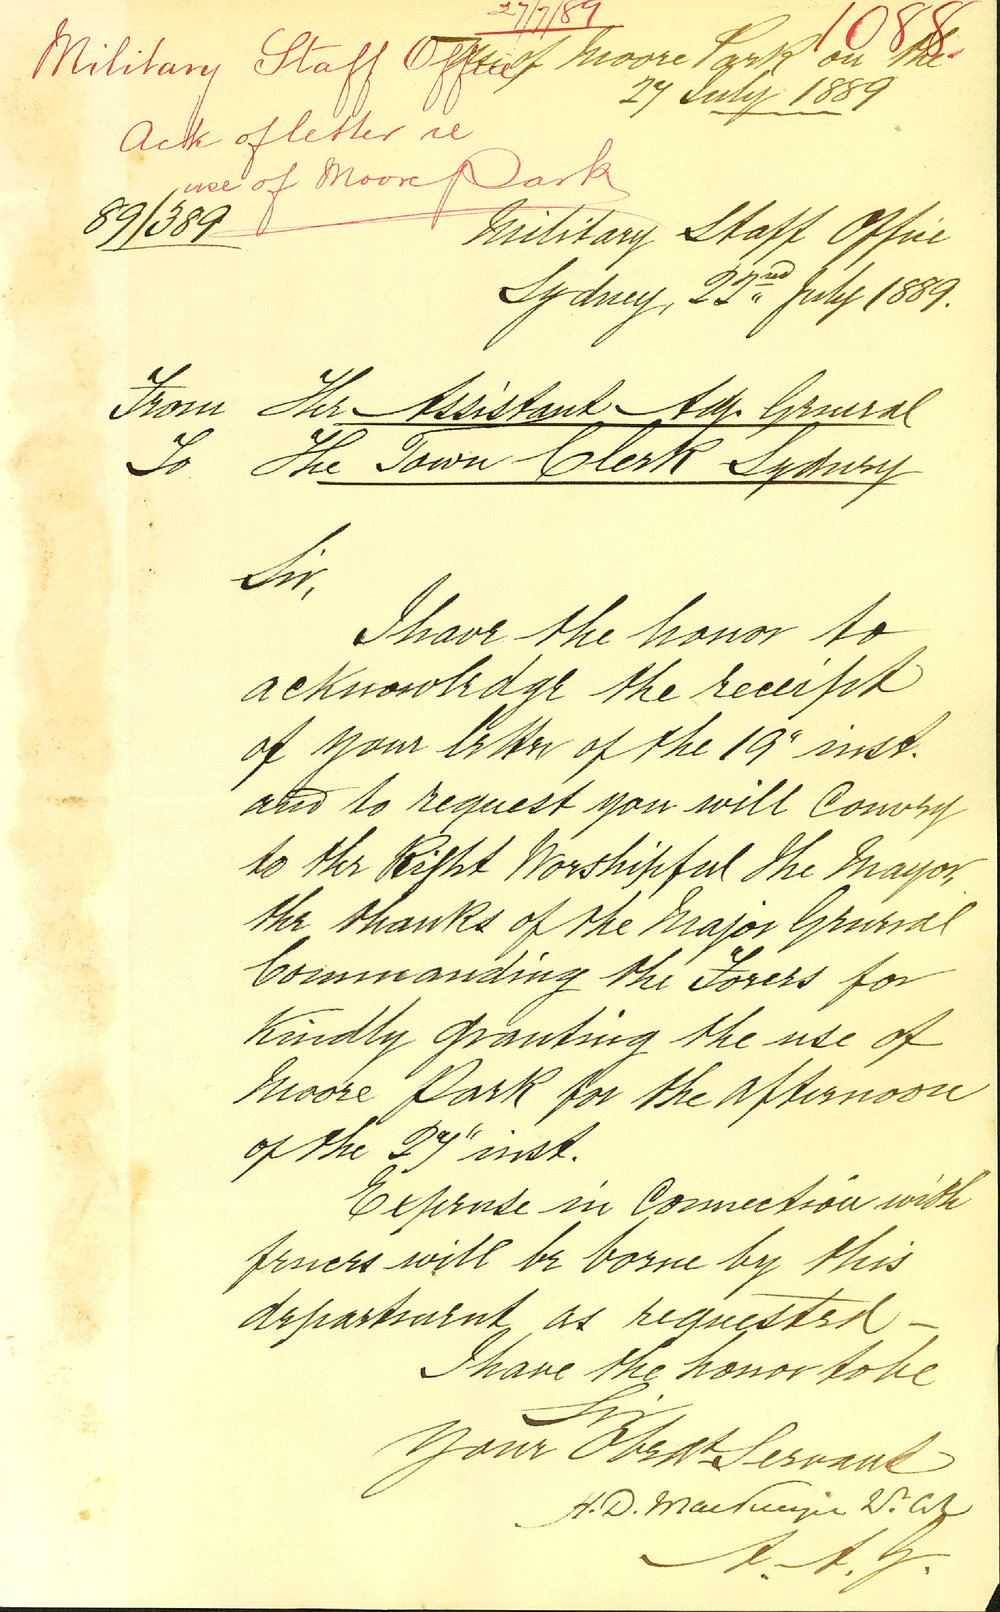 27/7/89
1088.
Military Staff Office
Use of Moore Park on the
27 July 1889
Ack of letter re
use of Moore Park
89/389
Military Staff Office
Sydney, 22nd July 1889.
From The Assistant Adj. General
To The Town Clerk Sydney
Sir,
I have the honor to
acknowledge the receipt
of your letter of the 19" inst.
and to request you will Convey
to the Right Worshipful The Mayor,
the thanks of the Major General
Commanding the Forces for
Kindly granting the use of
Moore Park for the afternoon
of the 27" inst.
Expense in Connection with
fences will be borne by this
department as requested -
I have the honor to be
Sir
Your Obedt Servant
H. D. Mackenzie Lt. Col
A. A. G.